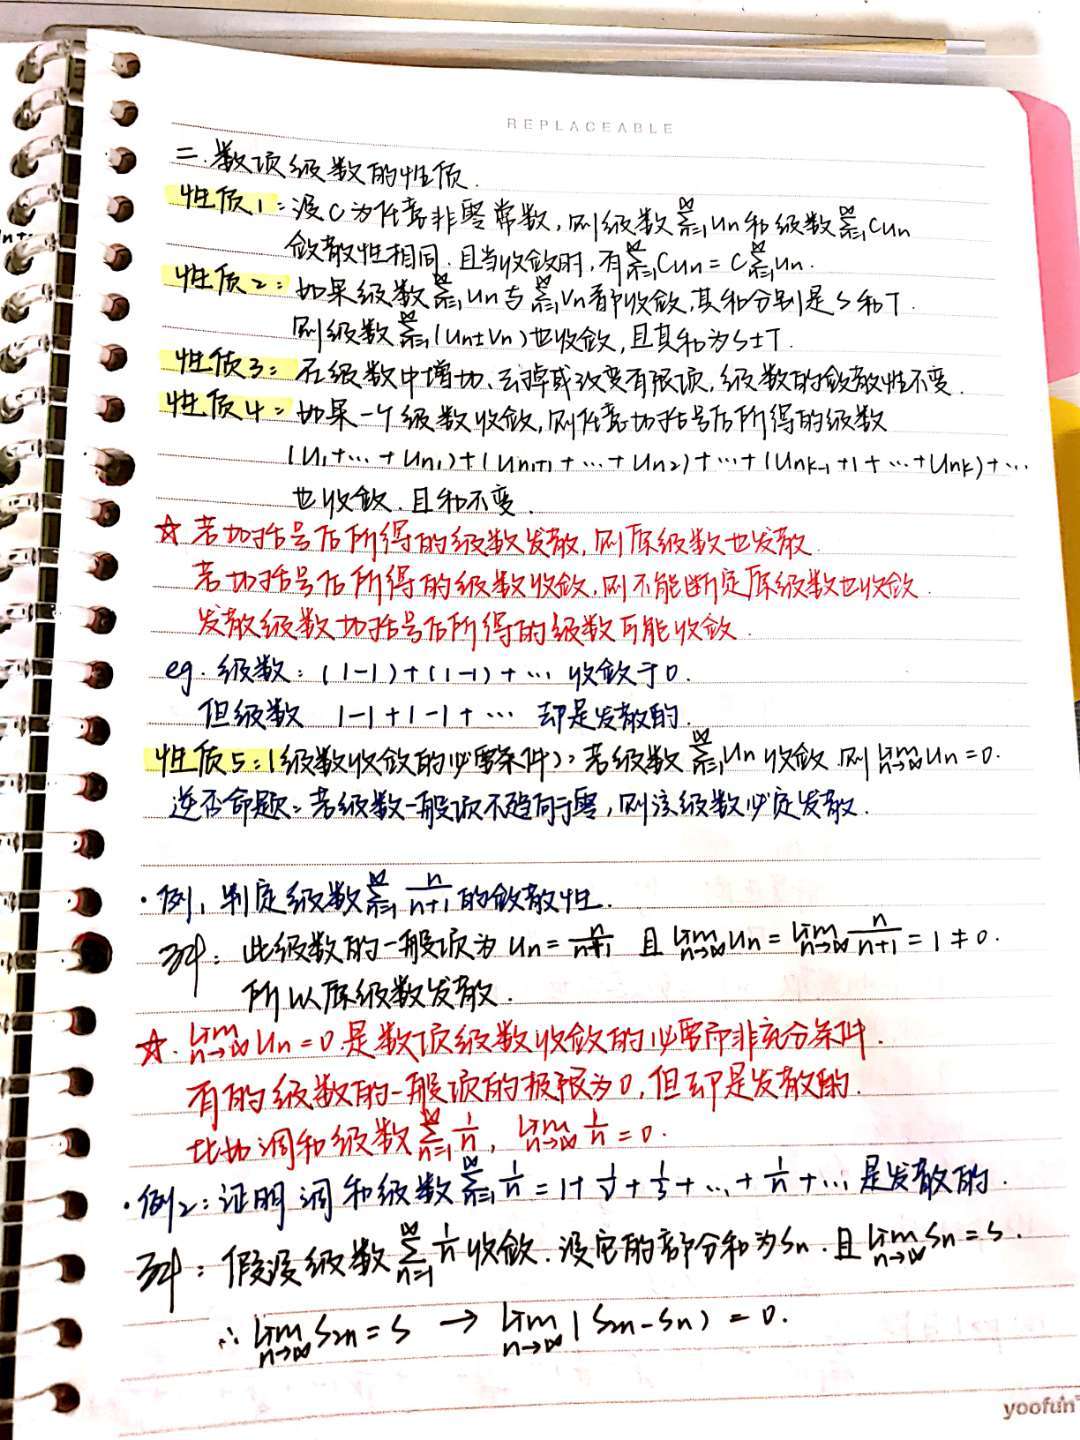 REPLACEABLE
二.数项级数的性质.
性质1:设C为任意非零常数,则级数∑_{n=1}^∞ Un和级数∑_{n=1}^∞ CUn
敛散性相同.且当收敛时,有∑_{n=1}^∞ CUn = C∑_{n=1}^∞ Un.
性质2:如果级数∑_{n=1}^∞ Un与∑_{n=1}^∞ Vn都收敛,其和分别是S和T.
则级数∑_{n=1}^∞(Un±Vn)也收敛,且其和为S±T.
性质3:在级数中增加、去掉或改变有限项,级数的敛散性不变.
性质4:如果一个级数收敛,则任意加括号后所得的级数
(U₁+…+Un₁)+(Un₁+1+…+Un₂)+…+(Unk-1+1+…+Unk)+…
也收敛.且和不变.
☆若加括号后所得的级数发散,则原级数也发散.
若加括号后所得的级数收敛,则不能断定原级数也收敛.
发散级数加括号后所得的级数可能收敛.
eg.级数:(1-1)+(1-1)+…收敛于0.
但级数 1-1+1-1+… 却是发散的.
性质5:(级数收敛的必要条件):若级数∑_{n=1}^∞ Un收敛.则lim_{n→∞} Un=0.
逆否命题:若级数一般项不趋向于零,则该级数必定发散.
·例1 判定级数∑_{n=1}^∞ n/(n+1)的敛散性.
解:此级数的一般项为Un=n/(n+1) 且lim_{n→∞} Un=lim_{n→∞} n/(n+1)=1≠0.
所以原级数发散.
☆.lim_{n→∞} Un=0是数项级数收敛的必要而非充分条件.
有的级数的一般项的极限为0,但却是发散的.
比如调和级数∑_{n=1}^∞ 1/n, lim_{n→∞} 1/n=0.
·例2:证明调和级数∑_{n=1}^∞ 1/n=1+1/2+1/3+…+1/n+…是发散的.
解:假设级数∑_{n=1}^∞ 1/n收敛.设它的部分和为Sn.且lim_{n→∞} Sn=S.
∴lim_{n→∞} S2n=S → lim_{n→∞}(S2n-Sn)=0.
yoofun